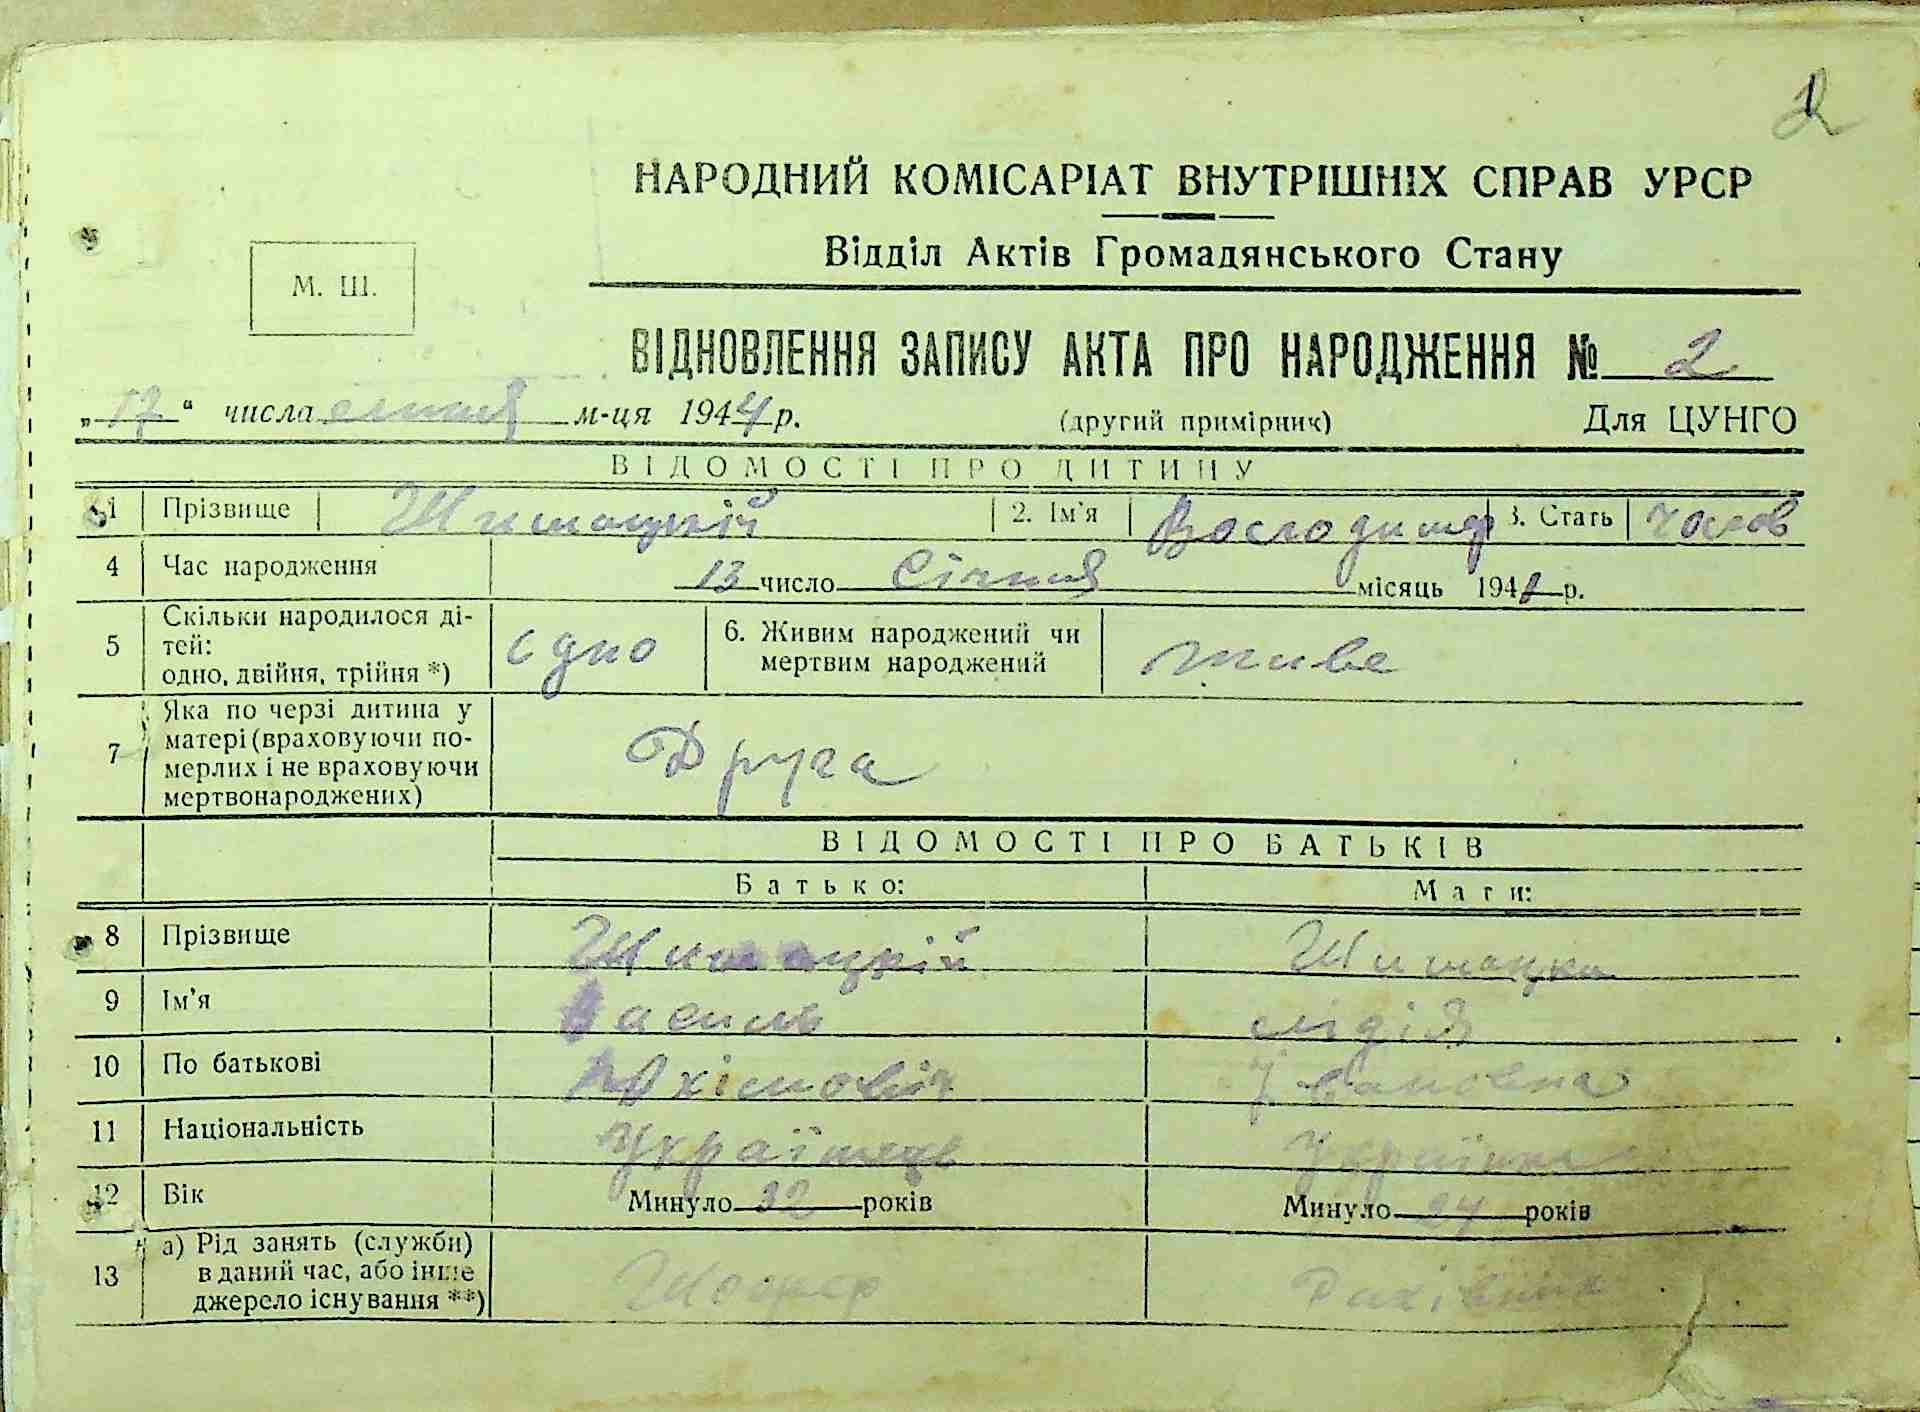 2
НАРОДНИЙ КОМІСАРІАТ ВНУТРІШНІХ СПРАВ УРСР
Відділ Актів Громадянського Стану
М. Ш.
ВІДНОВЛЕННЯ ЗАПИСУ АКТА ПРО НАРОДЖЕННЯ № 2
„17“ числа м-ця 1944 р. (другий примірник) Для ЦУНГО
ВІДОМОСТІ ПРО ДИТИНУ
1 Прізвище Шимацкій 2. Ім'я Володимр 3. Стать чолов
4 Час народження 13 число Січня місяць 194 р.
5 Скільки народилося ді-
тей:
одно, двійня, трійня *) одно 6. Живим народжений чи
мертвим народжений живе
7 Яка по черзі дитина у
матері (враховуючи по-
мерлих і не враховуючи
мертвонароджених) Друга
ВІДОМОСТІ ПРО БАТЬКІВ
Батько: Мати:
8 Прізвище Шимацкій Шимацка
9 Ім'я Василь лідія
10 По батькові Івановна
11 Національність Українець Українка
12 Вік Минуло 32 років Минуло 24 років
13 а) Рід занять (служби)
в даний час, або інше
джерело існування **) Шофер Рахівник